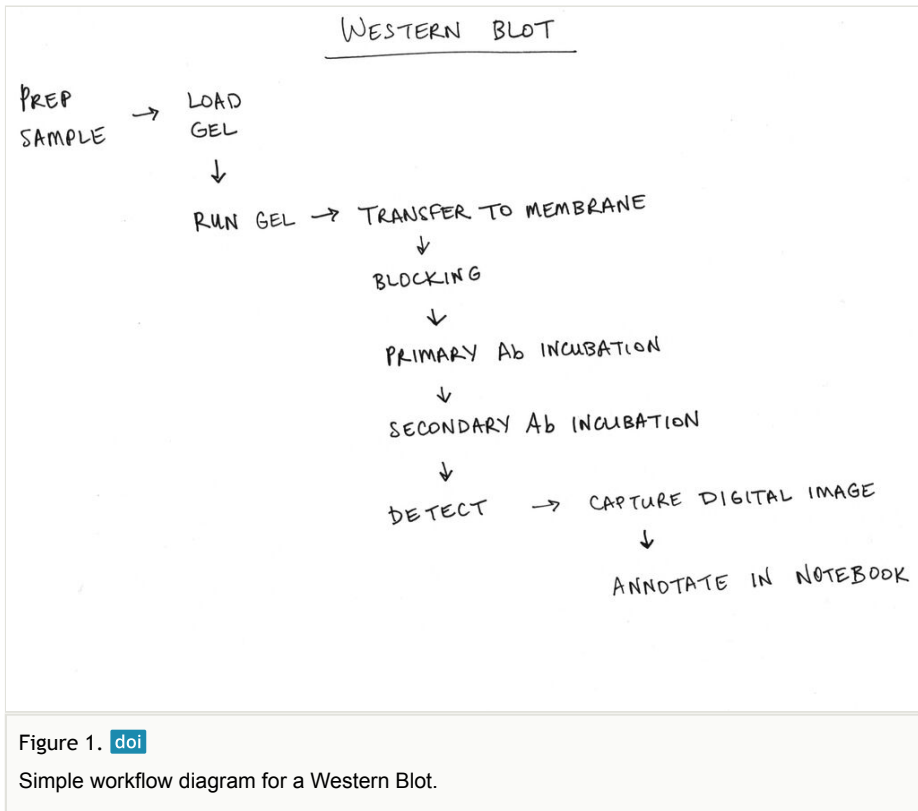 WESTERN BLOT
PREP
SAMPLE
→ LOAD
GEL
↓
RUN GEL → TRANSFER TO MEMBRANE
↓
BLOCKING
↓
PRIMARY Ab INCUBATION
↓
SECONDARY Ab INCUBATION
↓
DETECT → CAPTURE DIGITAL IMAGE
↓
ANNOTATE IN NOTEBOOK
Figure 1. doi
Simple workflow diagram for a Western Blot.